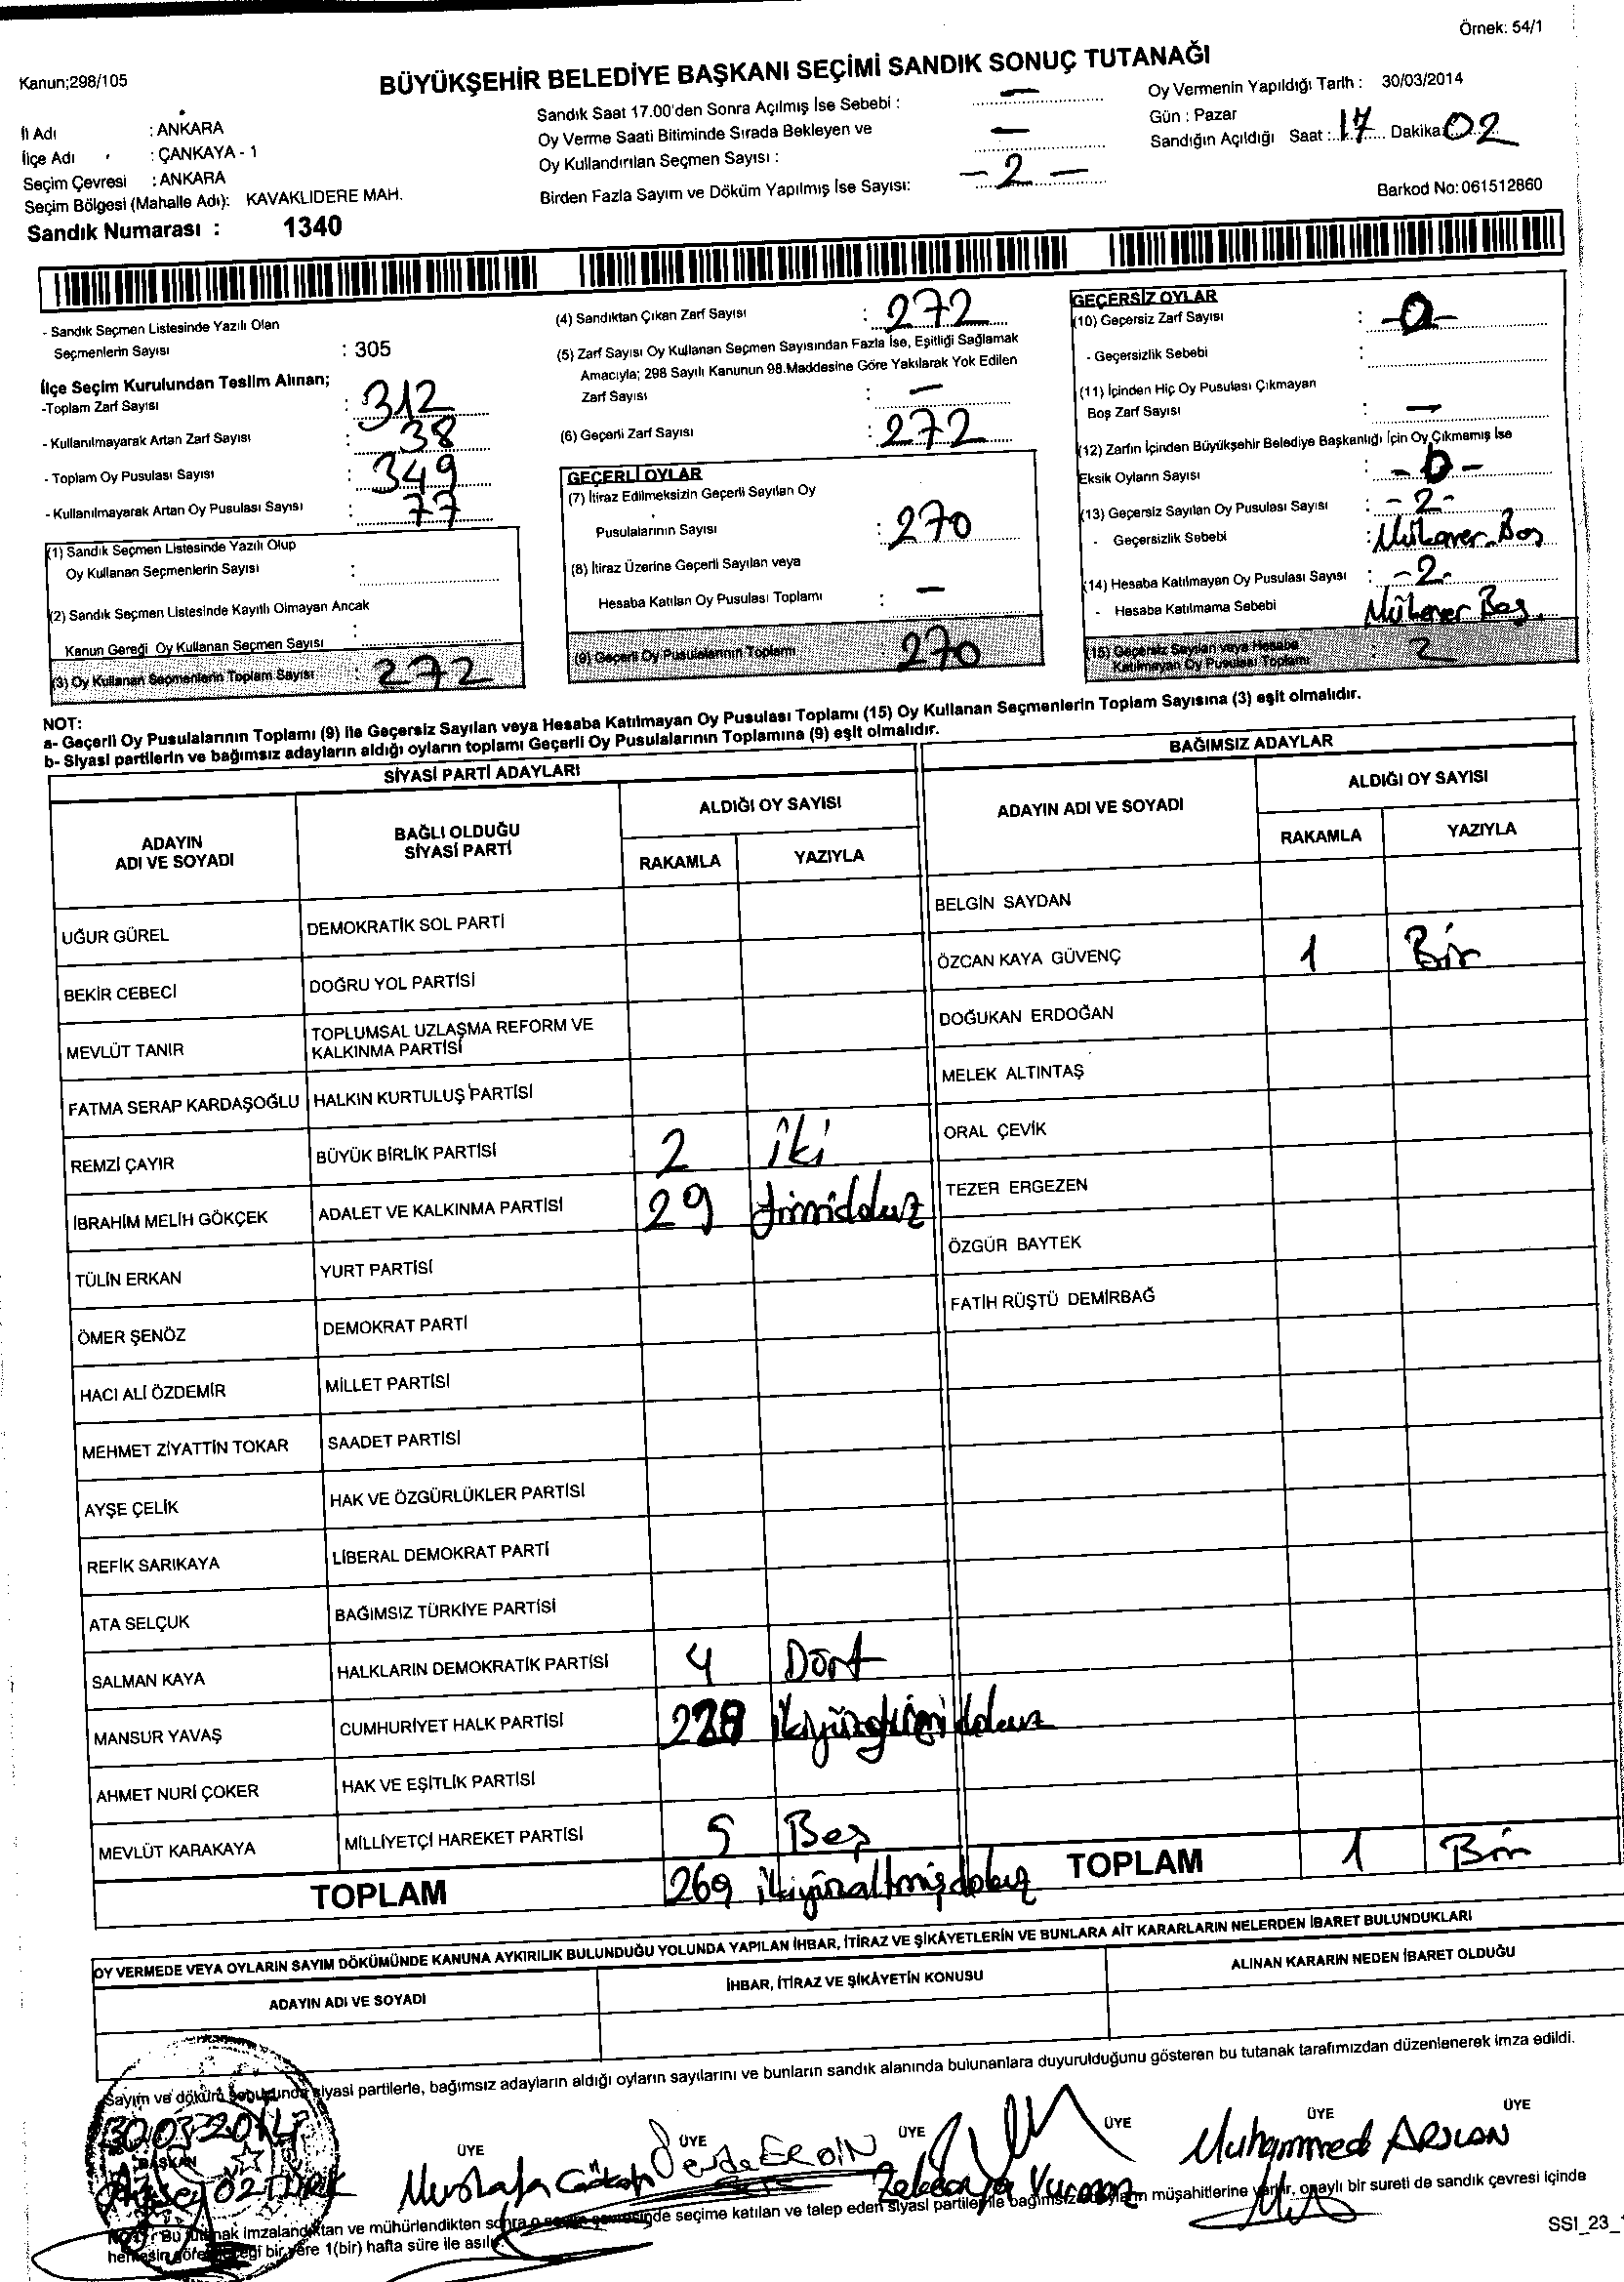 Örnek: 54/1
Kanun;298/105
BÜYÜKŞEHİR BELEDİYE BAŞKANI SEÇİMİ SANDIK SONUÇ TUTANAĞI
İl Adı : ANKARA
İlçe Adı : ÇANKAYA - 1
Seçim Çevresi : ANKARA
Seçim Bölgesi (Mahalle Adı): KAVAKLIDERE MAH.
Sandık Numarası : 1340
Sandık Saat 17.00'den Sonra Açılmış İse Sebebi : —
Oy Verme Saati Bitiminde Sırada Bekleyen ve
Oy Kullandırılan Seçmen Sayısı : —
Birden Fazla Sayım ve Döküm Yapılmış İse Sayısı: - 2 -
Oy Vermenin Yapıldığı Tarih : 30/03/2014
Gün : Pazar
Sandığın Açıldığı Saat : 17 Dakika 02
Barkod No: 061512860
- Sandık Seçmen Listesinde Yazılı Olan
Seçmenlerin Sayısı : 305
İlçe Seçim Kurulundan Teslim Alınan;
-Toplam Zarf Sayısı : 312
- Kullanılmayarak Artan Zarf Sayısı : 38
- Toplam Oy Pusulası Sayısı : 349
- Kullanılmayarak Artan Oy Pusulası Sayısı : 77
(1) Sandık Seçmen Listesinde Yazılı Olup
Oy Kullanan Seçmenlerin Sayısı :
(2) Sandık Seçmen Listesinde Kayıtlı Olmayan Ancak
Kanun Gereği Oy Kullanan Seçmen Sayısı :
(3) Oy Kullanan Seçmenlerin Toplam Sayısı : 272
(4) Sandıktan Çıkan Zarf Sayısı : 272
(5) Zarf Sayısı Oy Kullanan Seçmen Sayısından Fazla İse, Eşitliği Sağlamak
Amacıyla; 298 Sayılı Kanunun 98.Maddesine Göre Yakılarak Yok Edilen
Zarf Sayısı : —
(6) Geçerli Zarf Sayısı : 272
GEÇERLİ OYLAR
(7) İtiraz Edilmeksizin Geçerli Sayılan Oy
Pusulalarının Sayısı : 270
(8) İtiraz Üzerine Geçerli Sayılan veya
Hesaba Katılan Oy Pusulası Toplamı : —
(9) Geçerli Oy Pusulalarının Toplamı 270
GEÇERSİZ OYLAR
(10) Geçersiz Zarf Sayısı : -0-
- Geçersizlik Sebebi :
(11) İçinden Hiç Oy Pusulası Çıkmayan
Boş Zarf Sayısı : —
(12) Zarfın İçinden Büyükşehir Belediye Başkanlığı İçin Oy Çıkmamış İse
Eksik Oyların Sayısı : -0-
(13) Geçersiz Sayılan Oy Pusulası Sayısı : -2-
- Geçersizlik Sebebi : Mükerrer Boş
(14) Hesaba Katılmayan Oy Pusulası Sayısı : -2-
- Hesaba Katılmama Sebebi Mükerrer Boş
(15) Geçersiz Sayılan veya Hesaba
Katılmayan Oy Pusulası Toplamı : 2
NOT:
a- Geçerli Oy Pusulalarının Toplamı (9) ile Geçersiz Sayılan veya Hesaba Katılmayan Oy Pusulası Toplamı (15) Oy Kullanan Seçmenlerin Toplam Sayısına (3) eşit olmalıdır.
b- Siyasi partilerin ve bağımsız adayların aldığı oyların toplamı Geçerli Oy Pusulalarının Toplamına (9) eşit olmalıdır.
SİYASİ PARTİ ADAYLARI
ADAYIN ADI VE SOYADI BAĞLI OLDUĞU SİYASİ PARTİ ALDIĞI OY SAYISI
RAKAMLA YAZIYLA
UĞUR GÜREL DEMOKRATİK SOL PARTİ
BEKİR CEBECİ DOĞRU YOL PARTİSİ
MEVLÜT TANIR TOPLUMSAL UZLAŞMA REFORM VE KALKINMA PARTİSİ
FATMA SERAP KARDAŞOĞLU HALKIN KURTULUŞ PARTİSİ
REMZİ ÇAYIR BÜYÜK BİRLİK PARTİSİ 2 iki
İBRAHİM MELİH GÖKÇEK ADALET VE KALKINMA PARTİSİ 29 yirmidokuz
TÜLİN ERKAN YURT PARTİSİ
ÖMER ŞENÖZ DEMOKRAT PARTİ
HACI ALİ ÖZDEMİR MİLLET PARTİSİ
MEHMET ZİYATTİN TOKAR SAADET PARTİSİ
AYŞE ÇELİK HAK VE ÖZGÜRLÜKLER PARTİSİ
REFİK SARIKAYA LİBERAL DEMOKRAT PARTİ
ATA SELÇUK BAĞIMSIZ TÜRKİYE PARTİSİ
SALMAN KAYA HALKLARIN DEMOKRATİK PARTİSİ 4 Dört
MANSUR YAVAŞ CUMHURİYET HALK PARTİSİ 229 ikiyüzyirmidokuz
AHMET NURİ ÇOKER HAK VE EŞİTLİK PARTİSİ
MEVLÜT KARAKAYA MİLLİYETÇİ HAREKET PARTİSİ 5 Beş
TOPLAM 269 ikiyüzaltmışdokuz
BAĞIMSIZ ADAYLAR
ADAYIN ADI VE SOYADI ALDIĞI OY SAYISI
RAKAMLA YAZIYLA
BELGİN SAYDAN
ÖZCAN KAYA GÜVENÇ 1 Bir
DOĞUKAN ERDOĞAN
MELEK ALTINTAŞ
ORAL ÇEVİK
TEZER ERGEZEN
ÖZGÜR BAYTEK
FATİH RÜŞTÜ DEMİRBAĞ
TOPLAM 1 Bir
OY VERMEDE VEYA OYLARIN SAYIM DÖKÜMÜNDE KANUNA AYKIRILIK BULUNDUĞU YOLUNDA YAPILAN İHBAR, İTİRAZ VE ŞİKÂYETLERİN VE BUNLARA AİT KARARLARIN NELERDEN İBARET BULUNDUKLARI
ADAYIN ADI VE SOYADI İHBAR, İTİRAZ VE ŞİKÂYETİN KONUSU ALINAN KARARIN NEDEN İBARET OLDUĞU
Sayım ve döküm sonucunda siyasi partilerle, bağımsız adayların aldığı oyların sayılarını ve bunların sandık alanında bulunanlara duyurulduğunu gösteren bu tutanak tarafımızdan düzenlenerek imza edildi.
30.03.2014
BAŞKAN ÜYE ÜYE ÜYE ÜYE ÜYE ÜYE
ÖZTÜRK Mustafa Zekeriya Muhammed ARSLAN
NOT: Bu tutanak imzalandıktan ve mühürlendikten sonra seçime katılan ve talep eden siyasi partiler ile bağımsız adayların müşahitlerine verilir, onaylı bir sureti de sandık çevresi içinde
herkesin göreceği bir yere 1(bir) hafta süre ile asılır.
SSI_23_